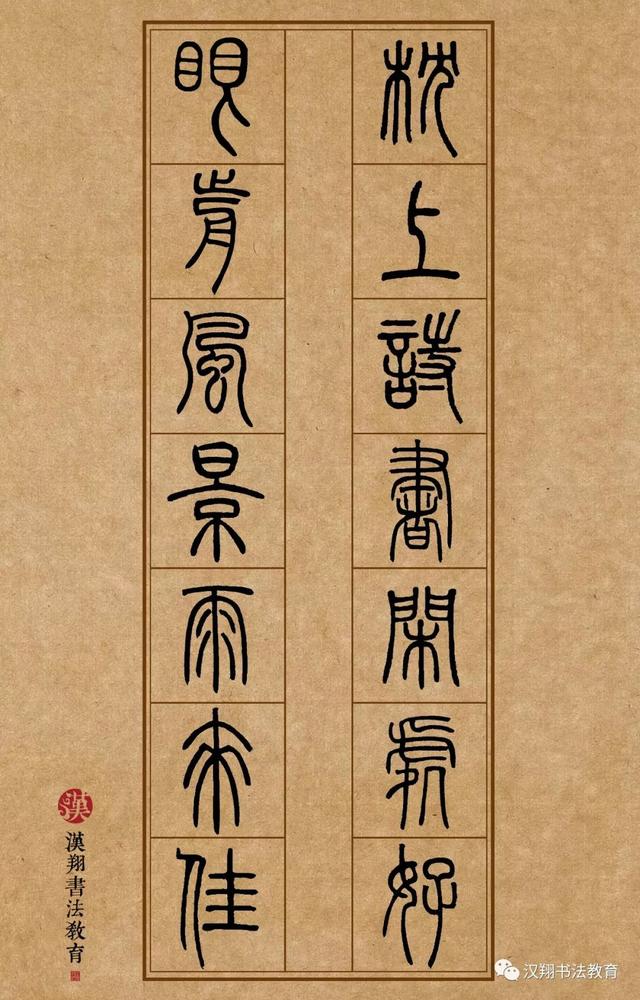 枕上詩書閑處好
眼前風景雨來佳
漢翔書法教育
汉翔书法教育